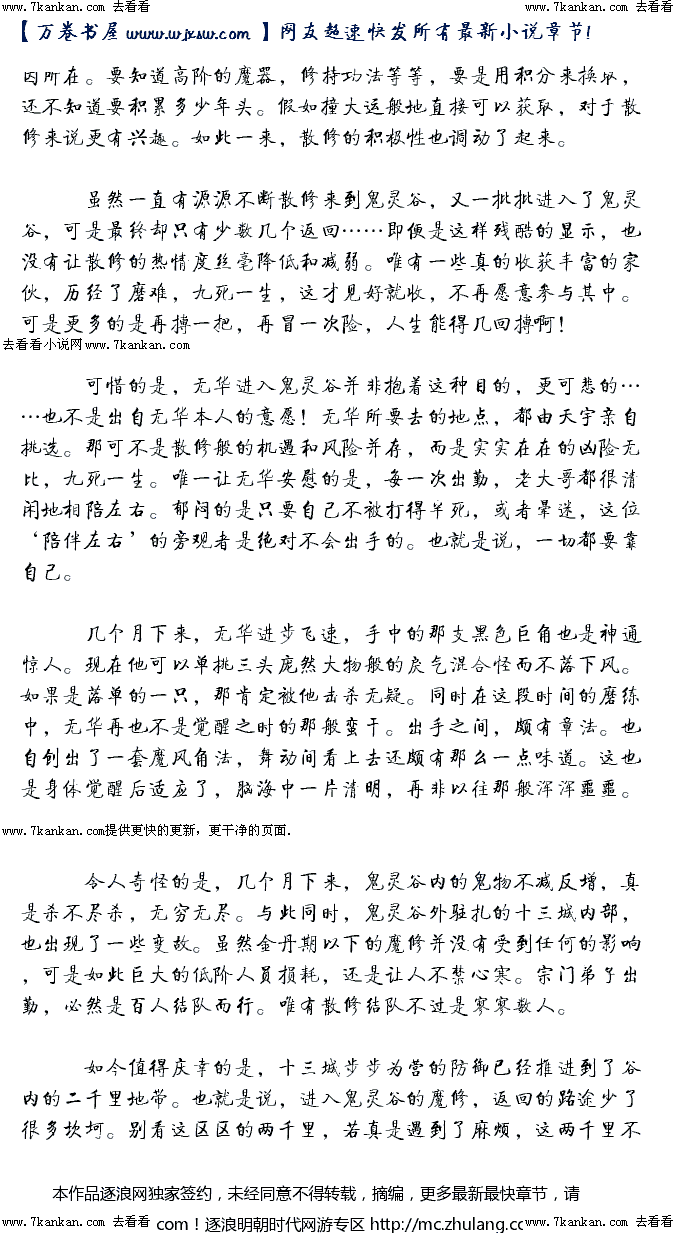 www.7kankan.com 去看看 www.7kankan.com 去看看
【万卷书屋 www.wjxsw.com 】网友超速快发所有最新小说章节!
因所在。要知道高阶的魔器，修持功法等等，要是用积分来换取，
还不知道要积累多少年头。假如撞大运般地直接可以获取，对于散
修来说更有兴趣。如此一来，散修的积极性也调动了起来。
虽然一直有源源不断散修来到鬼灵谷，又一批批进入了鬼灵
谷，可是最终却只有少数几个返回……即便是这样残酷的显示，也
没有让散修的热情度丝毫降低和减弱。唯有一些真的收获丰富的家
伙，历经了磨难，九死一生，这才见好就收，不再愿意参与其中。
可是更多的是再搏一把，再冒一次险，人生能得几回搏啊！
去看看小说网www.7kankan.com
可惜的是，无华进入鬼灵谷并非抱着这种目的，更可悲的…
…也不是出自无华本人的意愿！无华所要去的地点，都由天宇亲自
挑选。那可不是散修般的机遇和风险并存，而是实实在在的凶险无
比，九死一生。唯一让无华安慰的是，每一次出勤，老大哥都很清
闲地相陪左右。郁闷的是只要自己不被打得半死，或者晕迷，这位
‘陪伴左右’的旁观者是绝对不会出手的。也就是说，一切都要靠
自己。
几个月下来，无华进步飞速，手中的那支黑色巨角也是神通
惊人。现在他可以单挑三头庞然大物般的戾气混合怪而不落下风。
如果是落单的一只，那肯定被他击杀无疑。同时在这段时间的磨练
中，无华再也不是觉醒之时的那般蛮干。出手之间，颇有章法。也
自创出了一套魔风角法，舞动间看上去还颇有那么一点味道。这也
是身体觉醒后适应了，脑海中一片清明，再非以往那般浑浑噩噩。
www.7kankan.com提供更快的更新，更干净的页面.
令人奇怪的是，几个月下来，鬼灵谷内的鬼物不减反增，真
是杀不尽杀，无穷无尽。与此同时，鬼灵谷外驻扎的十三城内部，
也出现了一些变故。虽然金丹期以下的魔修并没有受到任何的影响
，可是如此巨大的低阶人员损耗，还是让人不禁心寒。宗门弟子出
勤，必然是百人结队而行。唯有散修结队不过是寥寥数人。
如今值得庆幸的是，十三城步步为营的防御已经推进到了谷
内的二千里地带。也就是说，进入鬼灵谷的魔修，返回的路途少了
很多坎坷。别看这区区的两千里，若真是遇到了麻烦，这两千里不
本作品逐浪网独家签约，未经同意不得转载，摘编，更多最新最快章节，请
www.7kankan.com 去看看 com！逐浪明朝时代网游专区 http://mc.zhulang.cc www.7kankan.com 去看看